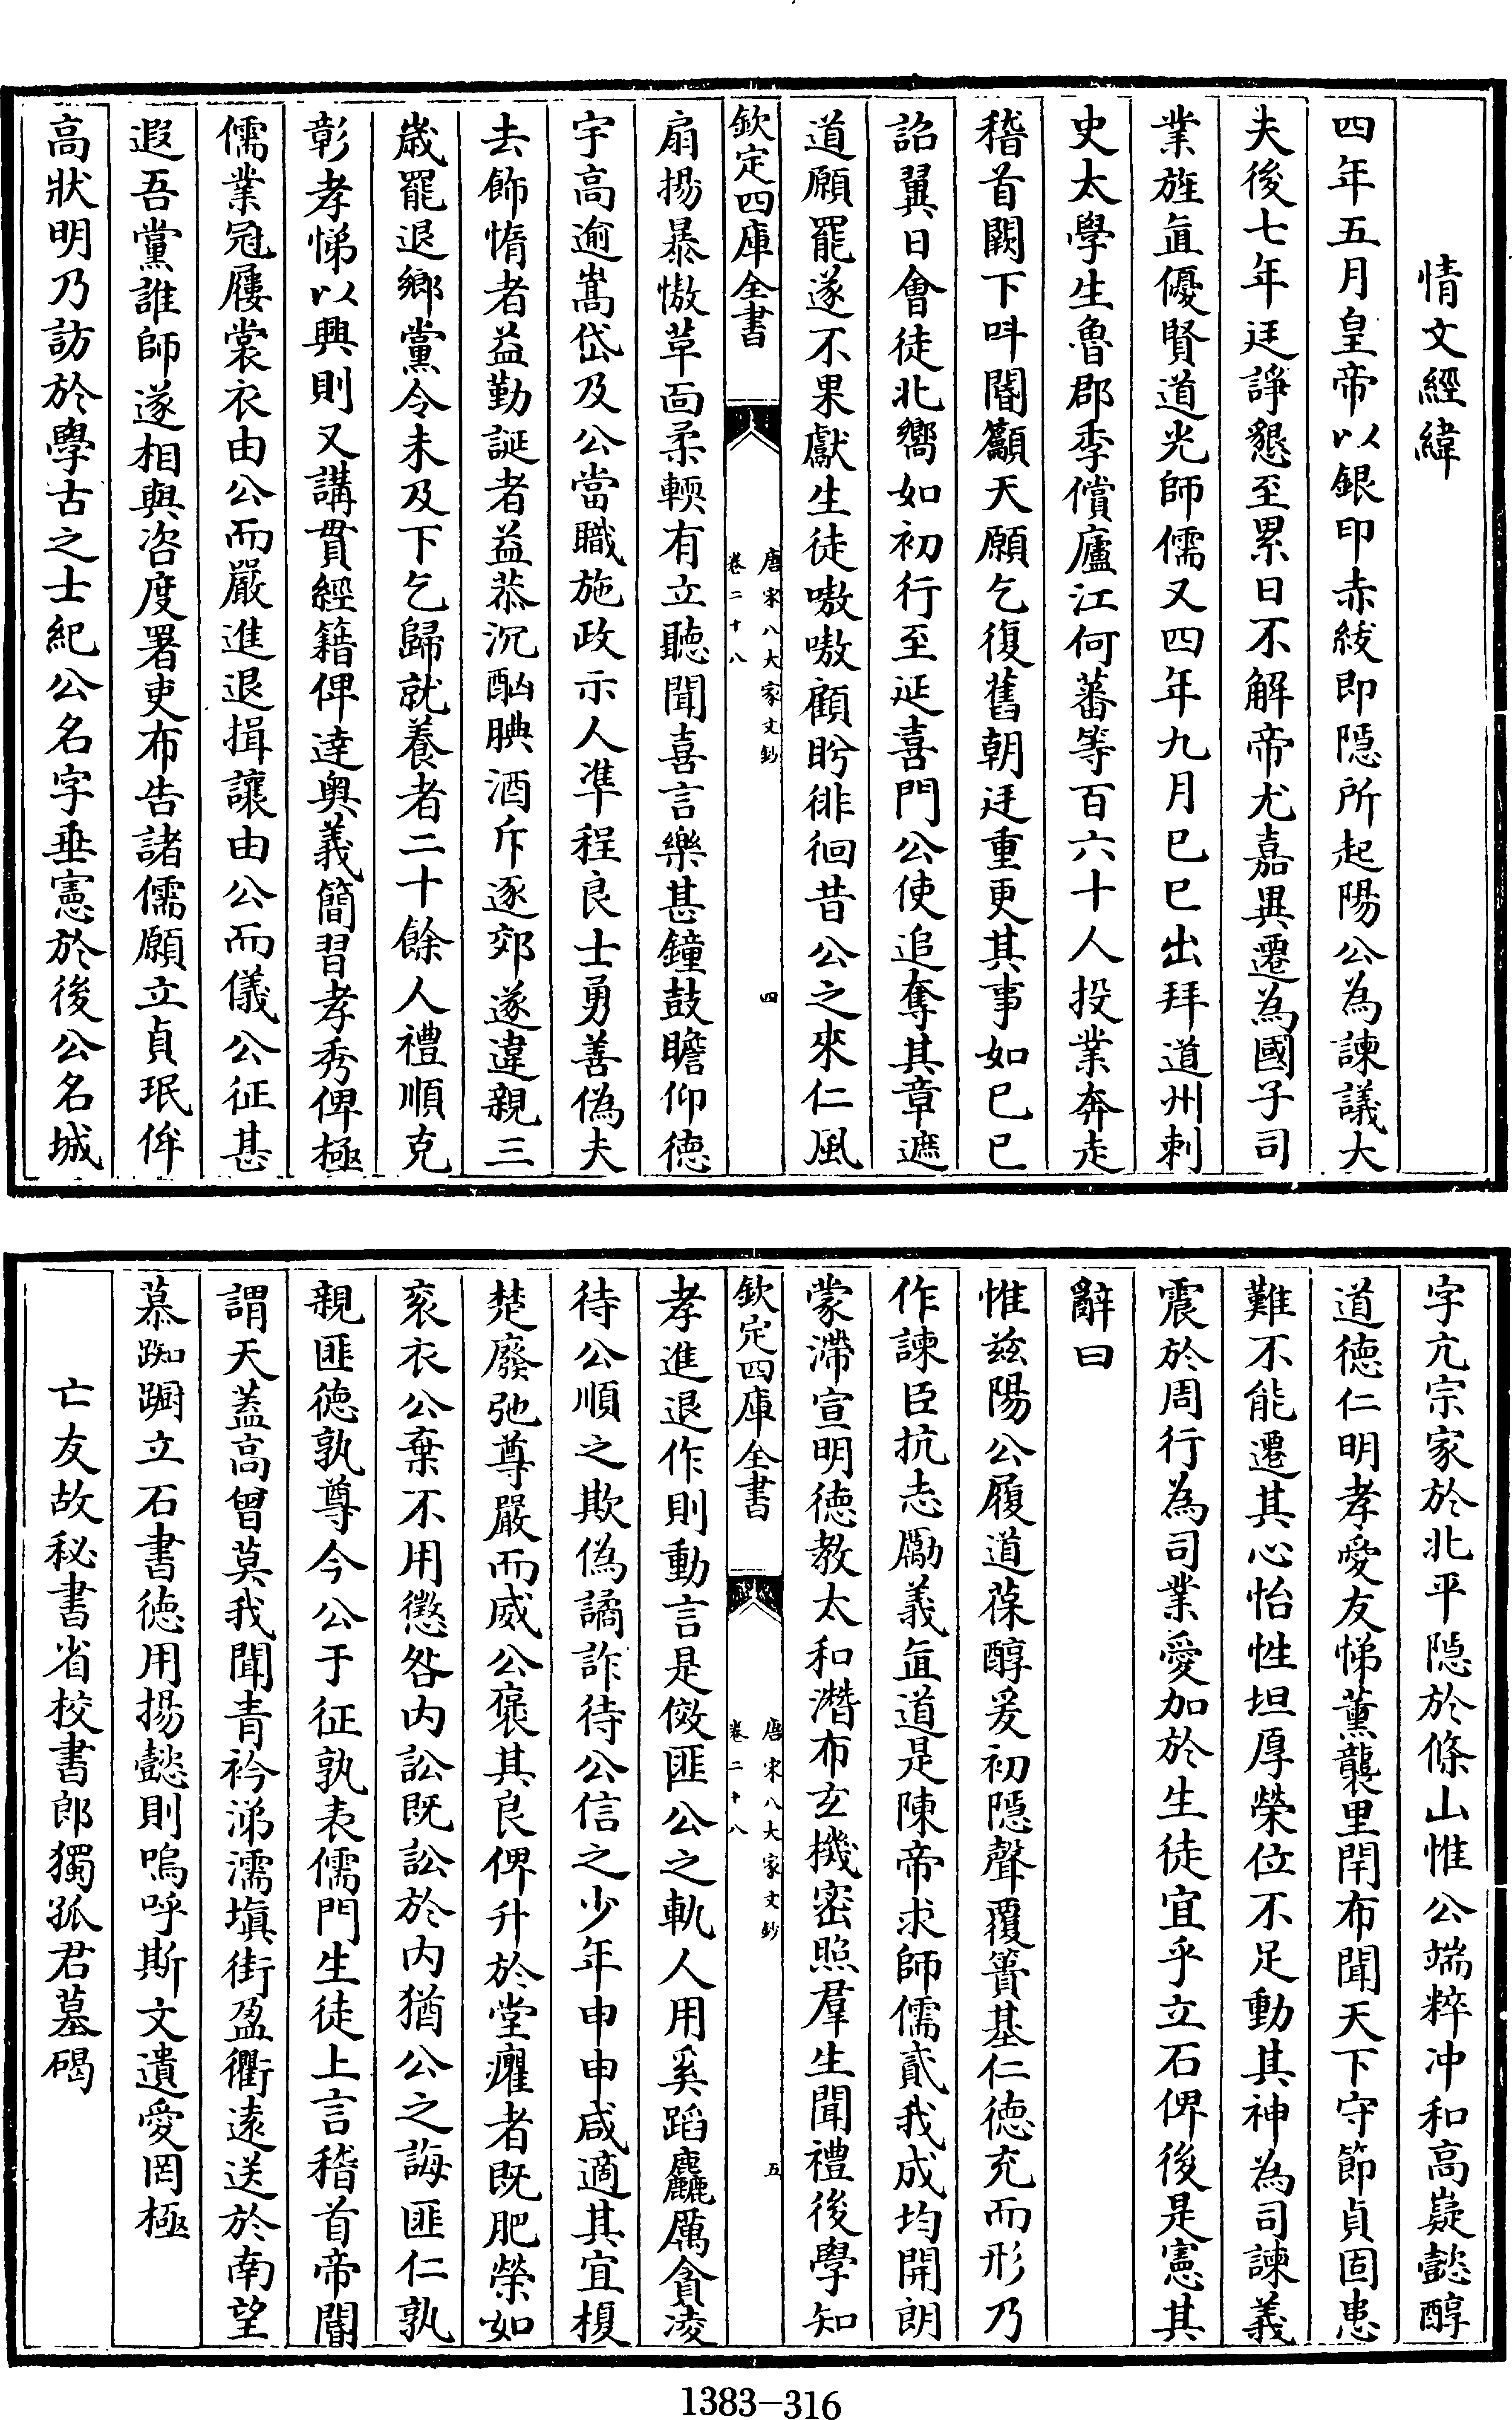 情文經緯
四年五月皇帝以銀印赤紱即隠所起陽公為諫議大
夫後七年廷諍懇至累日不解帝尤嘉異遷為國子司
業旌直優賢道光師儒又四年九月已巳出拜道州刺
史太學生魯郡季償廬江何蕃等百六十人投業奔走
稽首闕下叫閽籲天願乞復舊朝廷重更其事如已巳
詔翼日會徒北嚮如初行至延喜門公使追奪其章遮
道願罷遂不果獻生徒嗷嗷顧眄徘徊昔公之來仁風
欽定四庫全書
唐宋八大家文鈔
卷二十八
四
扇揚暴慠革面柔輭有立聽聞喜言樂甚鐘鼓瞻仰德
宇高逾嵩岱及公當職施政示人凖程良士勇善偽夫
去飾惰者益勤誕者益恭沉酗腆酒斥逐郊遂違親三
歲罷退鄉黨令未及下乞歸就養者二十餘人禮順克
彰孝悌以興則又講貫經籍俾達奥義簡習孝秀俾極
儒業冠屨裳衣由公而嚴進退揖讓由公而儀公征甚
遐吾黨誰師遂相與咨度署吏布告諸儒願立貞珉侔
高狀明乃訪於學古之士紀公名字垂憲於後公名城
字亢宗家於北平隠於條山惟公端粹冲和高嶷懿醇
道德仁明孝愛友悌薰襲里閈布聞天下守節貞固患
難不能遷其心怡性坦厚榮位不足動其神為司諫義
震於周行為司業愛加於生徒宜乎立石俾後是憲其
辭曰
惟兹陽公履道葆醇爰初隠聲覆簣基仁德充而形乃
作諫臣抗志勵義直道是陳帝求師儒貳我成均開朗
蒙滯宣明德教太和潛布玄機密照羣生聞禮後學知
欽定四庫全書
唐宋八大家文鈔
卷二十八
五
孝進退作則動言是傚匪公之軌人用奚蹈麤厲貪凌
待公順之欺偽譎詐待公信之少年申申咸適其宜榎
楚廢弛尊嚴而威公褒其良俾升於堂癯者既肥榮如
衮衣公棄不用懲咎内訟既訟於内猶公之誨匪仁孰
親匪德孰尊今公于征孰表儒門生徒上言稽首帝閽
謂天蓋高曾莫我聞青衿涕濡塡街盈衢遠送於南望
慕踟躕立石書德用揚懿則嗚呼斯文遺愛罔極
亡友故秘書省校書郎獨孤君墓碣
1383-316